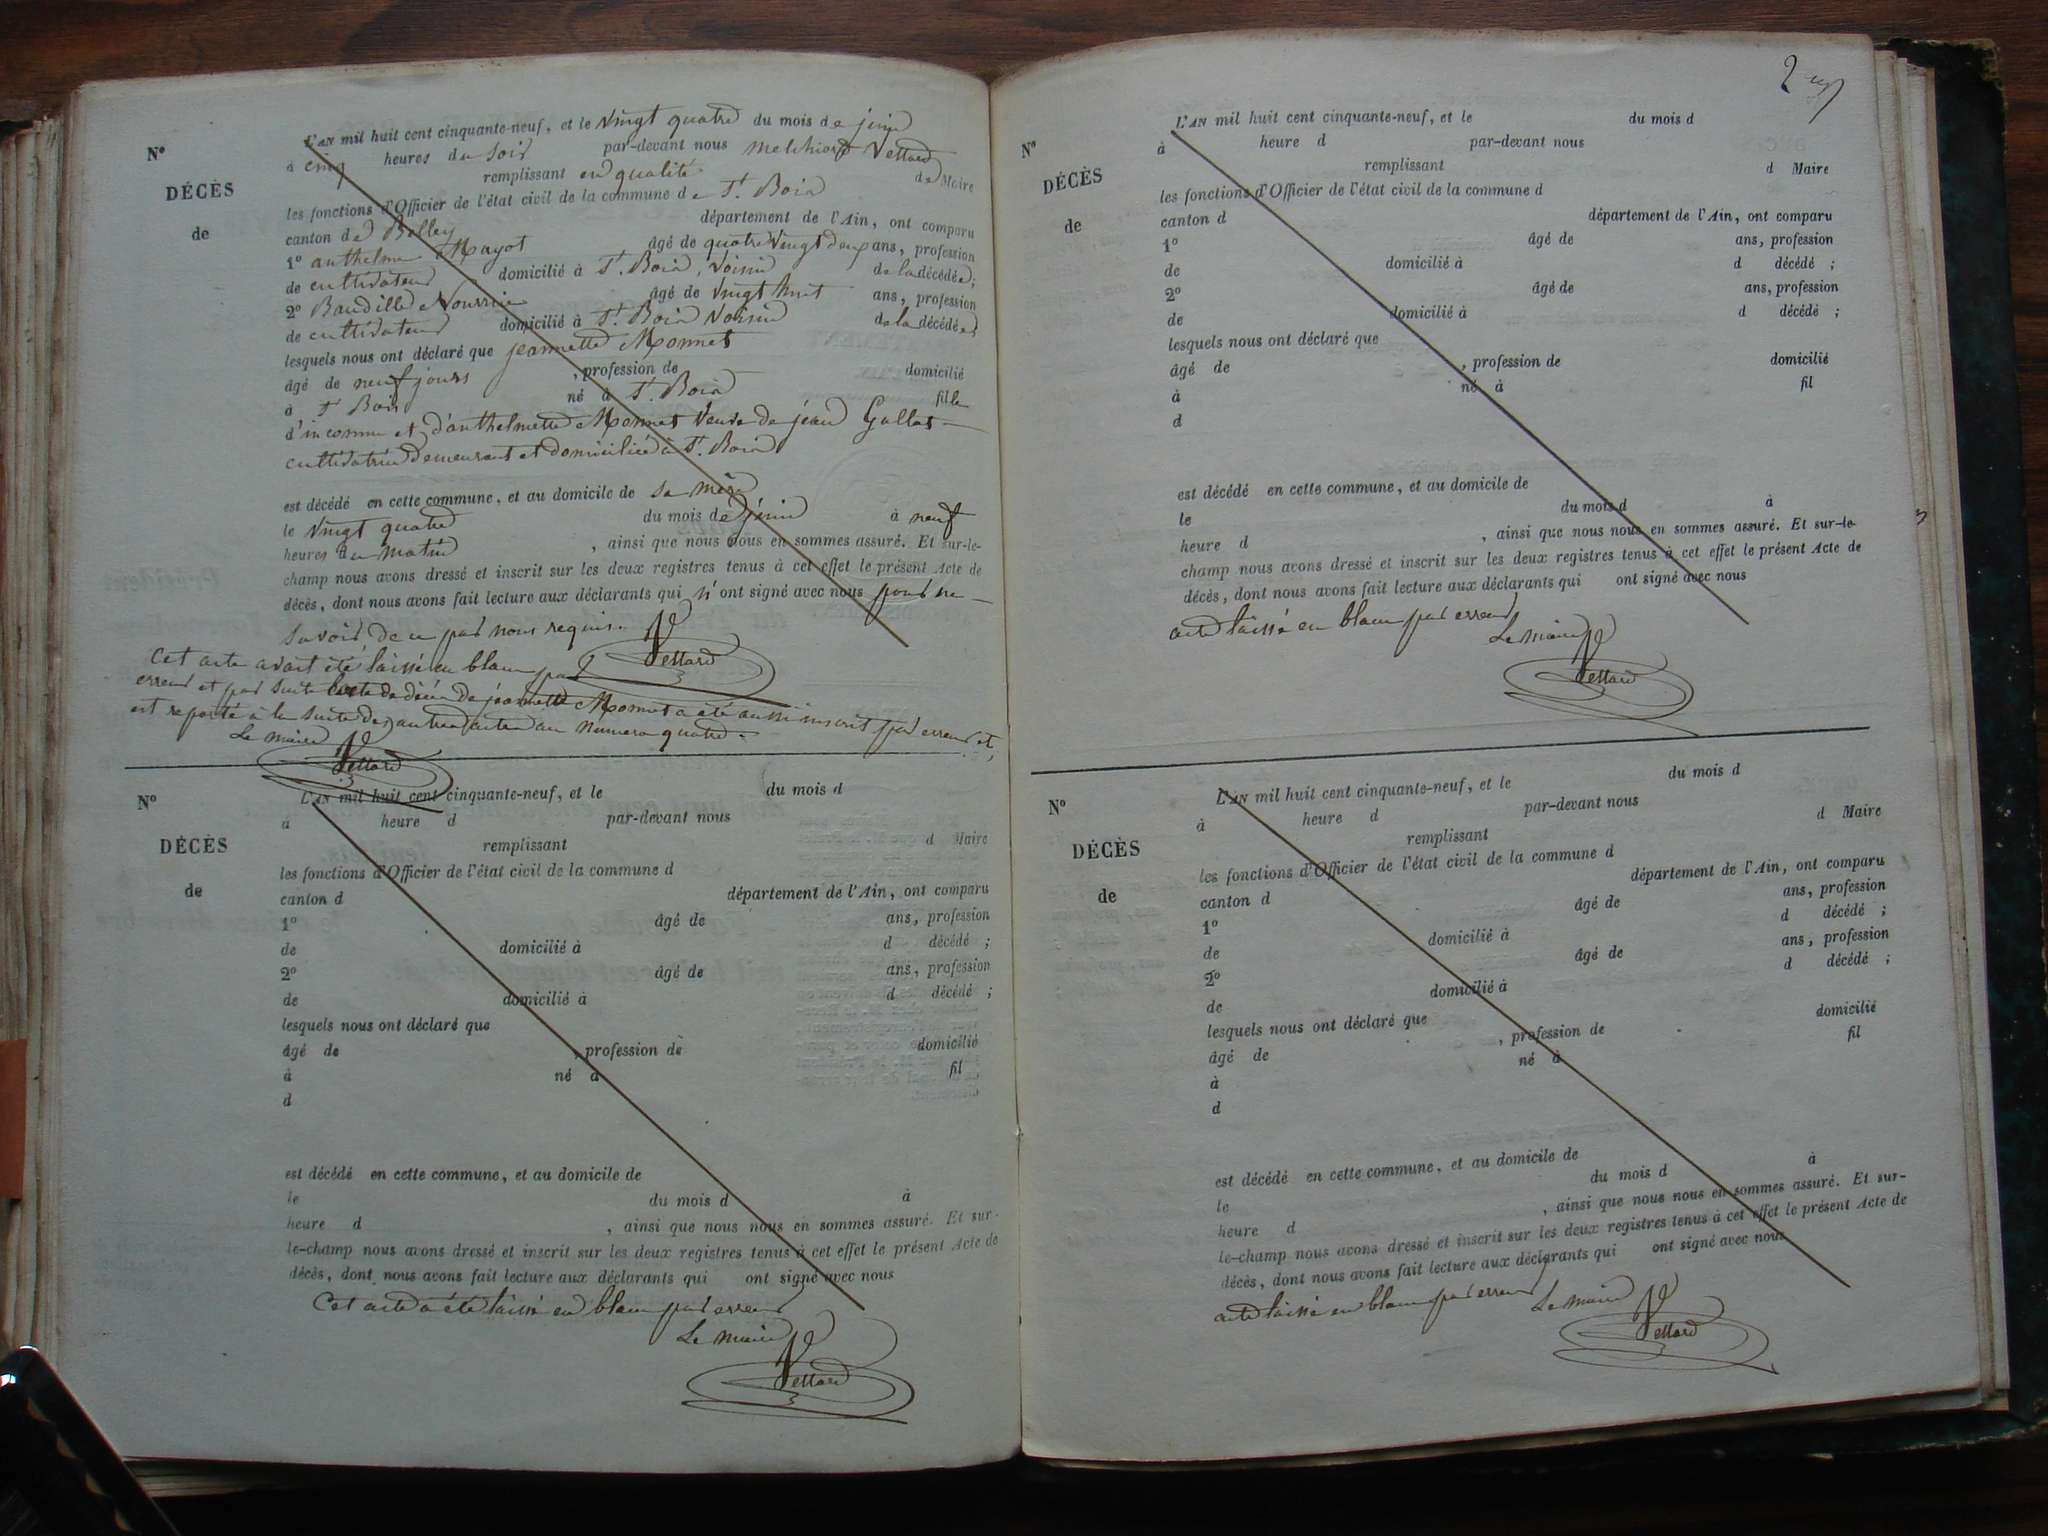 L'AN mil huit cent cinquante-neuf, et le vingt quatre du mois de juin
N° à cinq heures du soir par-devant nous melchior Vettard
DÉCÈS remplissant en qualité de Maire
les fonctions d'Officier de l'état civil de la commune de St. Bois
de canton de Belley département de l'Ain, ont comparu
1° anthelme Mayot âgé de quatre vingt deux ans, profession
de cultivateur domicilié à St. Bois, voisin de la décédée;
2° Baudille Nourrin âgé de vingt huit ans, profession
de cultivateur domicilié à St. Bois voisin de la décédée;
lesquels nous ont déclaré que jeannette Monnet
âgé de neuf jours , profession de domicilié
à St Bois né à St. Bois fille
d'inconnu et d'anthelmette Monnet veuve de jean Gallet
cultivatrice demeurant et domiciliée à St. Bois
est décédé en cette commune, et au domicile de sa mère
le vingt quatre du mois de juin à neuf
heures du matin , ainsi que nous nous en sommes assuré. Et sur-le-
champ nous avons dressé et inscrit sur les deux registres tenus à cet effet le présent Acte de
décès, dont nous avons fait lecture aux déclarants qui n'ont signé avec nous pour ne
savoir de ce par nous requis.
Vettard
Cet acte avait été laissé en blanc par
erreur et par suite l'acte de décès de jeannette Monnet a été aussi inscrit par erreur et
est reporté à la suite des autres actes au numero quatre.
Le maire
Vettard
L'AN mil huit cent cinquante-neuf, et le du mois d
N° à heure d par-devant nous
DÉCÈS remplissant d Maire
les fonctions d'Officier de l'état civil de la commune d
de canton d département de l'Ain, ont comparu
1° âgé de ans, profession
de domicilié à d décédé ;
2° âgé de ans, profession
de domicilié à d décédé ;
lesquels nous ont déclaré que
âgé de , profession de domicilié
à né à fil
d
est décédé en cette commune, et au domicile de
le du mois d à
heure d , ainsi que nous nous en sommes assuré. Et sur-
le-champ nous avons dressé et inscrit sur les deux registres tenus à cet effet le présent Acte de
décès, dont nous avons fait lecture aux déclarants qui ont signé avec nous
Cet acte a été laissé en blanc par erreur
Le maire
Vettard
L'AN mil huit cent cinquante-neuf, et le du mois d
N° à heure d par-devant nous
DÉCÈS remplissant d Maire
les fonctions d'Officier de l'état civil de la commune d
de canton d département de l'Ain, ont comparu
1° âgé de ans, profession
de domicilié à d décédé ;
2° âgé de ans, profession
de domicilié à d décédé ;
lesquels nous ont déclaré que
âgé de , profession de domicilié
à né à fil
d
est décédé en cette commune, et au domicile de
le du mois d à
heure d , ainsi que nous nous en sommes assuré. Et sur-le-
champ nous avons dressé et inscrit sur les deux registres tenus à cet effet le présent Acte de
décès, dont nous avons fait lecture aux déclarants qui ont signé avec nous
acte laissé en blanc par erreur
Le maire
Vettard
L'AN mil huit cent cinquante-neuf, et le du mois d
N° à heure d par-devant nous
DÉCÈS remplissant d Maire
les fonctions d'Officier de l'état civil de la commune d
de canton d département de l'Ain, ont comparu
1° âgé de ans, profession
de domicilié à d décédé ;
2° âgé de ans, profession
de domicilié à d décédé ;
lesquels nous ont déclaré que
âgé de , profession de domicilié
à né à fil
d
est décédé en cette commune, et au domicile de
le du mois d à
heure d , ainsi que nous nous en sommes assuré. Et sur-
le-champ nous avons dressé et inscrit sur les deux registres tenus à cet effet le présent Acte de
décès, dont nous avons fait lecture aux déclarants qui ont signé avec nous
acte laissé en blanc par erreur Le maire
Vettard